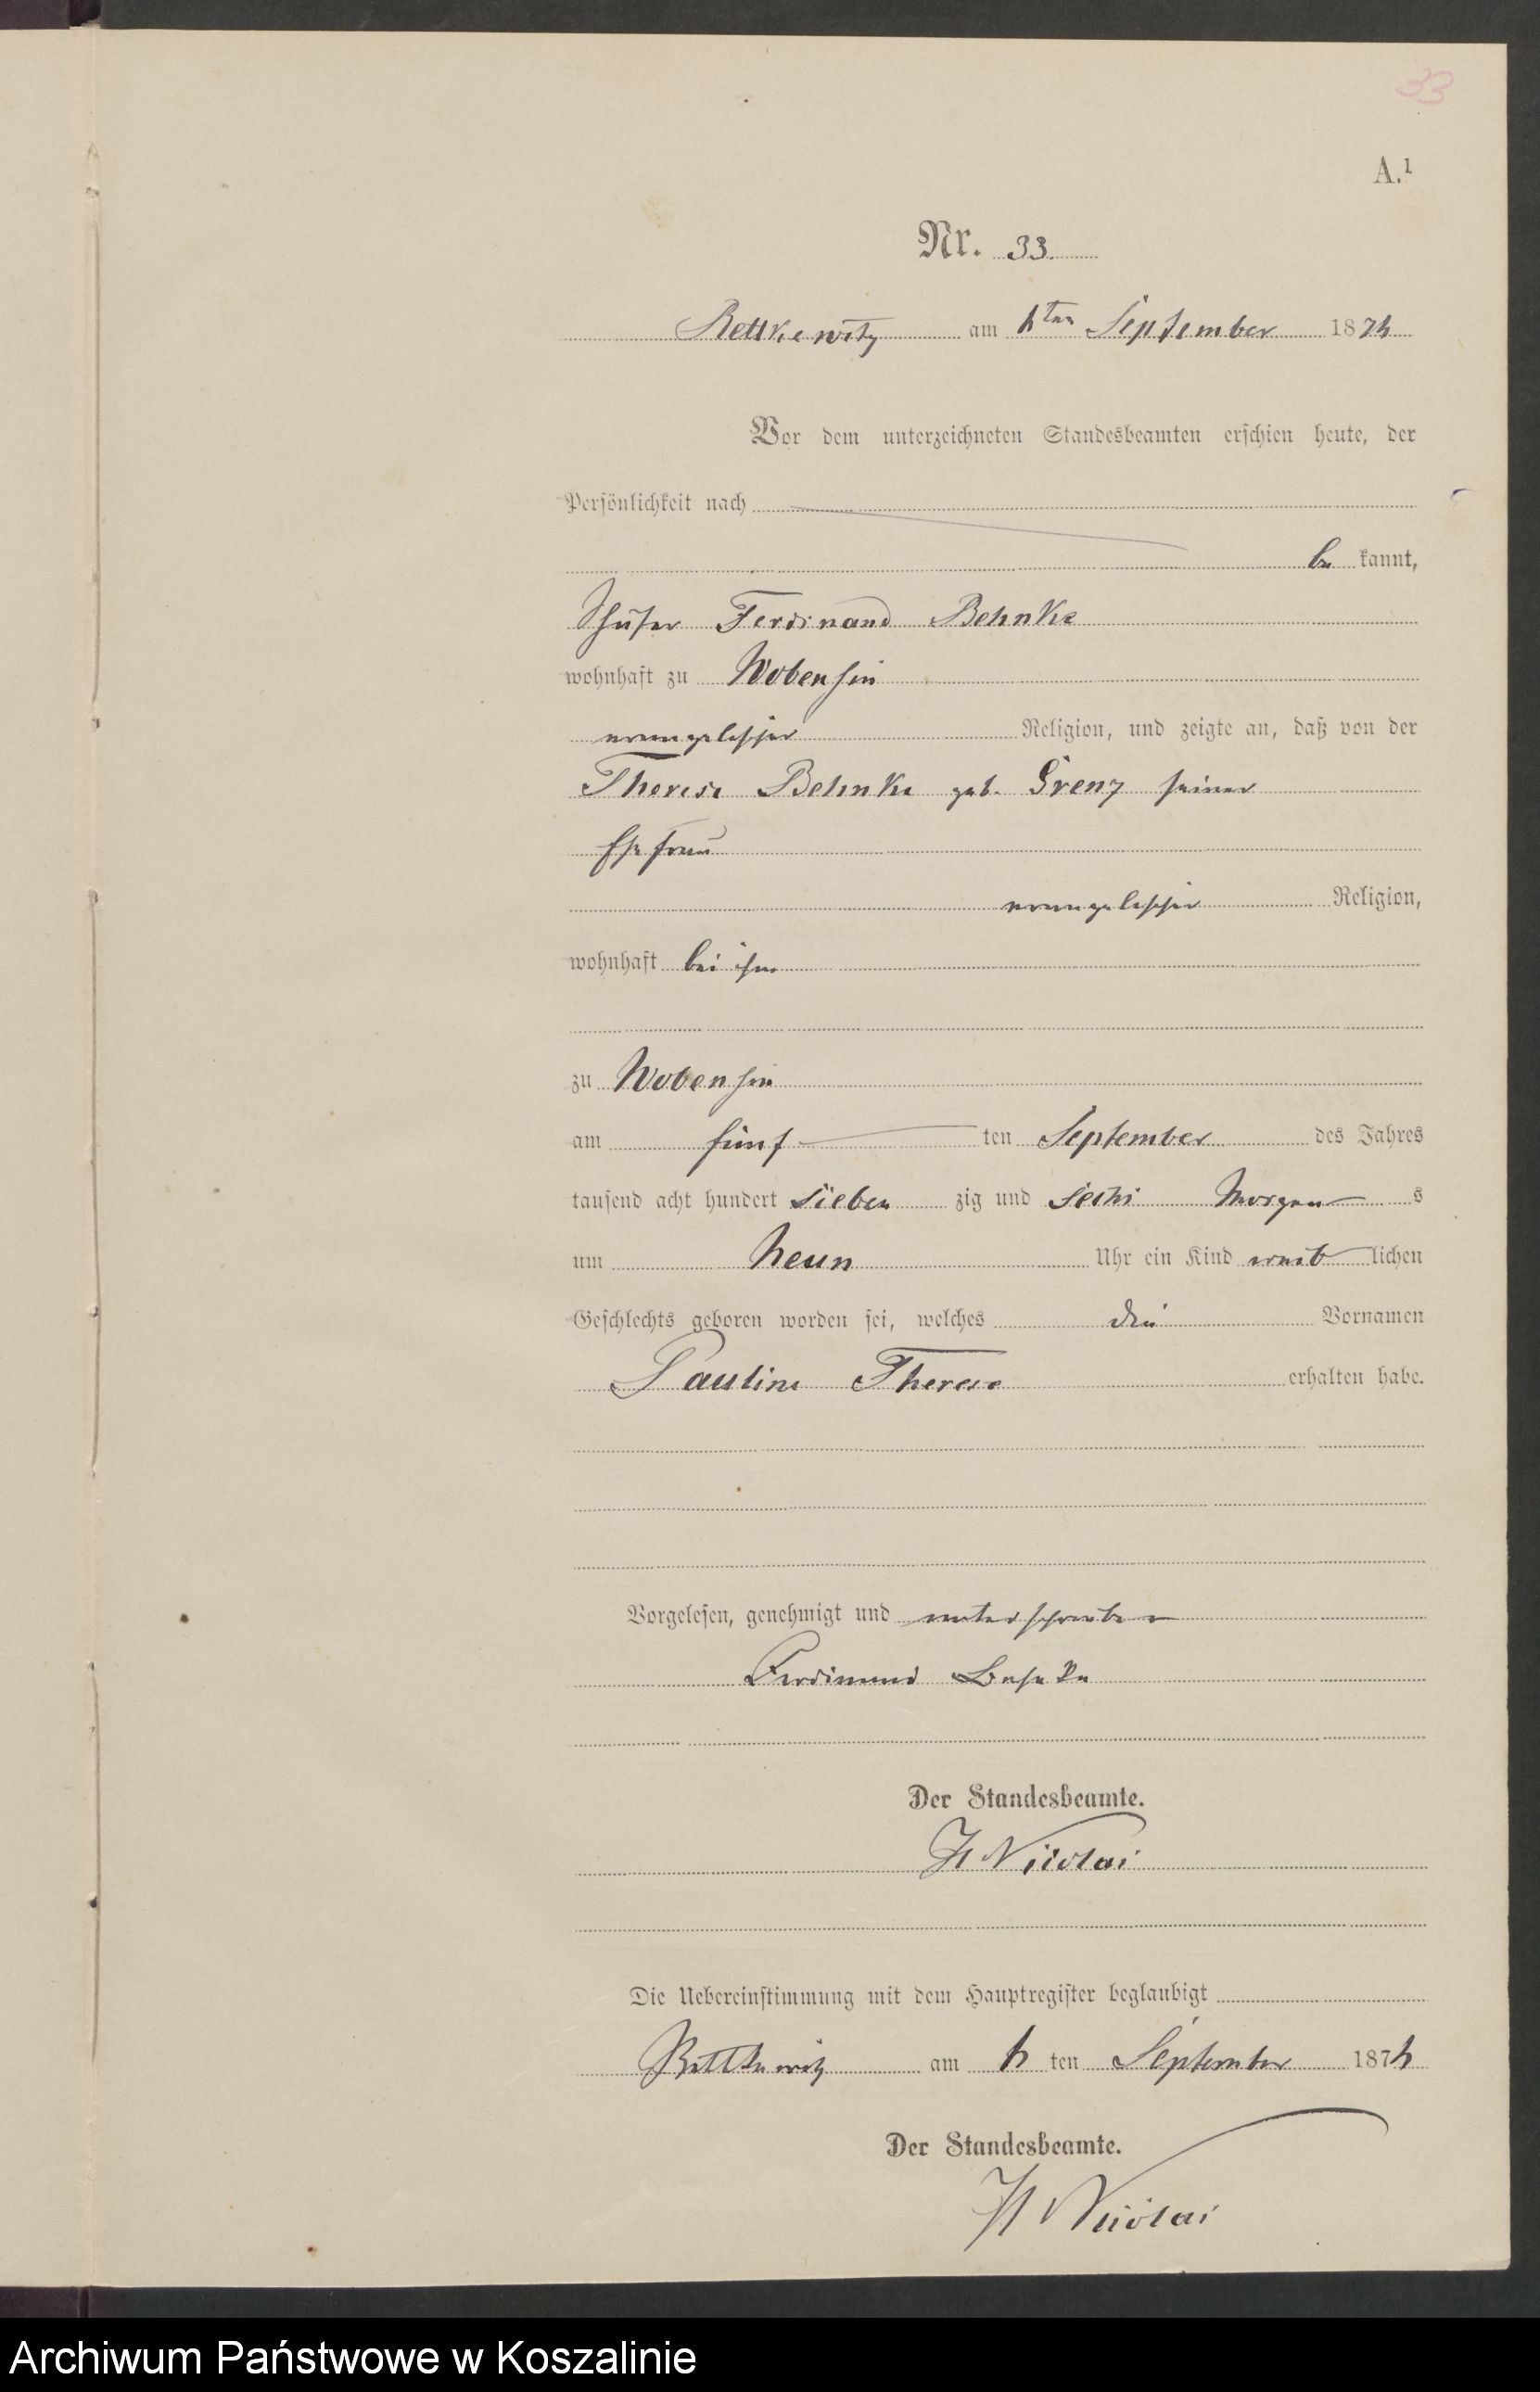 33
A.¹
Nr. 33.
Rettkewitz am 6ten September 1876
Vor dem unterzeichneten Standesbeamten erschien heute, der
Persönlichkeit nach
be kannt,
Schäfer Ferdinand Behnke
wohnhaft zu Wobensin
evangelischer Religion, und zeigte an, daß von der
Therese Behnke geb. Grenz seiner
Ehefrau
evangelischer Religion,
wohnhaft bei ihm
zu Wobensin
am fünf ten September des Jahres
tausend acht hundert sieben zig und sechs Morgens
um neun Uhr ein Kind weiblichen
Geschlechts geboren worden sei, welches die Vornamen
Pauline Therese erhalten habe.
Vorgelesen, genehmigt und unterschrieben
Ferdinand Behnke
Der Standesbeamte.
Nicolai
Die Uebereinstimmung mit dem Hauptregister beglaubigt
Rettkewitz am 6 ten September 1876
Der Standesbeamte.
Nicolai
Archiwum Państwowe w Koszalinie